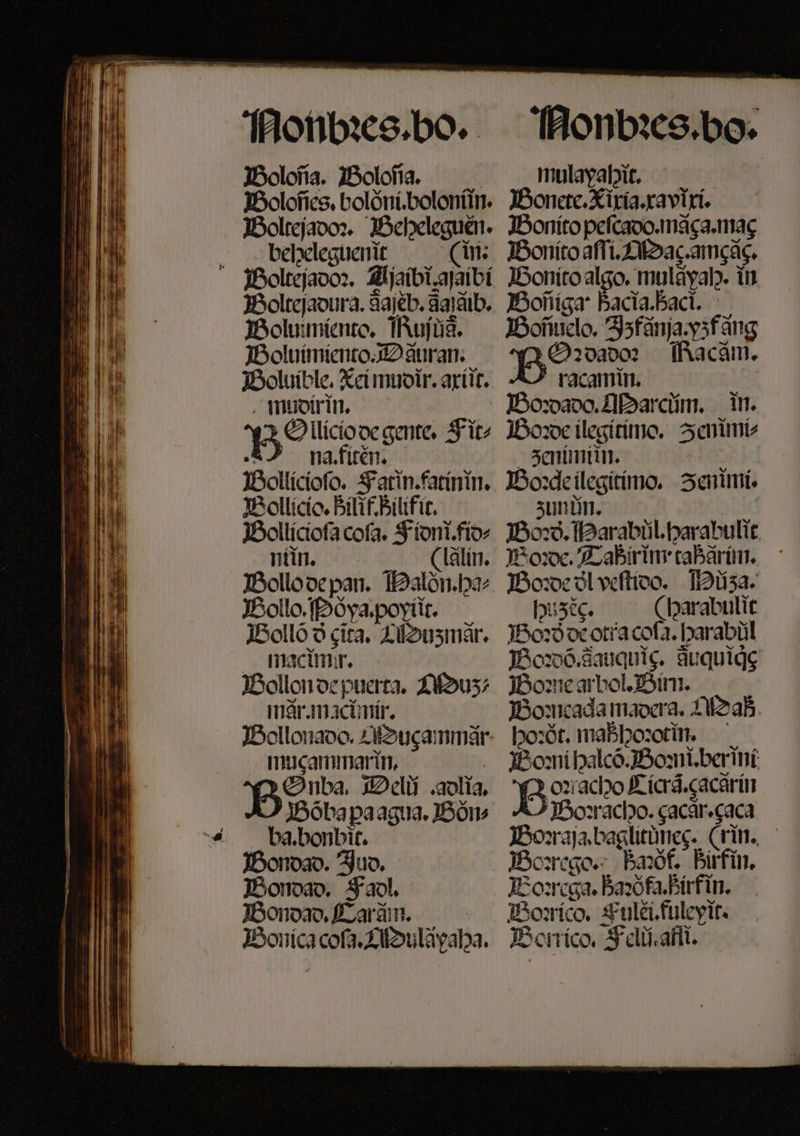 Nonbres.bo.
Boloña. Boloña.
Boloñes, bolôni.boloniîn.
Boltejador. Beheleguên.
beheleguenit (in:
Boltejador. Aljaibî.ajaibí
Boltejadura. âajêb. âajâib.
Boluimiento. Rujuâ.
Boluimiento. Dâuran.
Boluible. Xei mudir. axiit.
mudirîn.
Bollicio de gente. Fit-
na.fitên.
Bollicioso. Fatin.fatinîn.
Bollicio. hilif. hilifit.
Bolliciosa cosa. Fioni.fio-
niîn. (lâlin.
Bollo de pan. Halôn.ha-
Bollo. Hôya.poyiit.
Bolló d çita. Mouzmâr.
macimir.
Bollon de puerta. Mouz-
mâr.macimir.
Bollonado. Mouçammâr-
muçammarîn,
Bonba. Delii .aolia,
Bóba pa agua. Bôn-
ba.bonbit.
Bondad. Juo.
Bondad. Fadl.
Bondad. Carâm.
Bonica cosa. Moulâyaha.
Nonbres.bo.
mulayahît.
Bonete. Xixîa.xavixi.
Bonito pescado.mâça.maç
Bonito assi. Moaç.amçâç.
Bonito algo. mulâyah. in
Boñiga hacîa.haci.
Boñuelo. Isfânja.ysfâng
Bordador Racâm.
racamîn.
Bordado. Marcûm. in.
Borde ilegitimo. Zenimi-
zenimiîn.
Borde ilegitimo. Zenimi.
zunûn.
Bord. Harabûl.harabulit
Borde. Tahirîm tahârim.
Borde dl vestido. Hûza.
huzêç. (harabulit
Bord de otra cosa. harabûl
Bordó.âauquiç. âuquiqç
Borne arbol. Birn.
Borneada madera. Mah
horôt. mahhorotîn.
Borni halcó. Borni.berini
Borracho Cicrâ.çacârin
Borracho. çacâr.çaca
Borraja.baglitûneç. (rin.
Borrego. harôf. hirfin.
Borrega. harôfa.hirfin.
Borrico. Fulêi.fuleyit.
Borrico. Felû.afli.